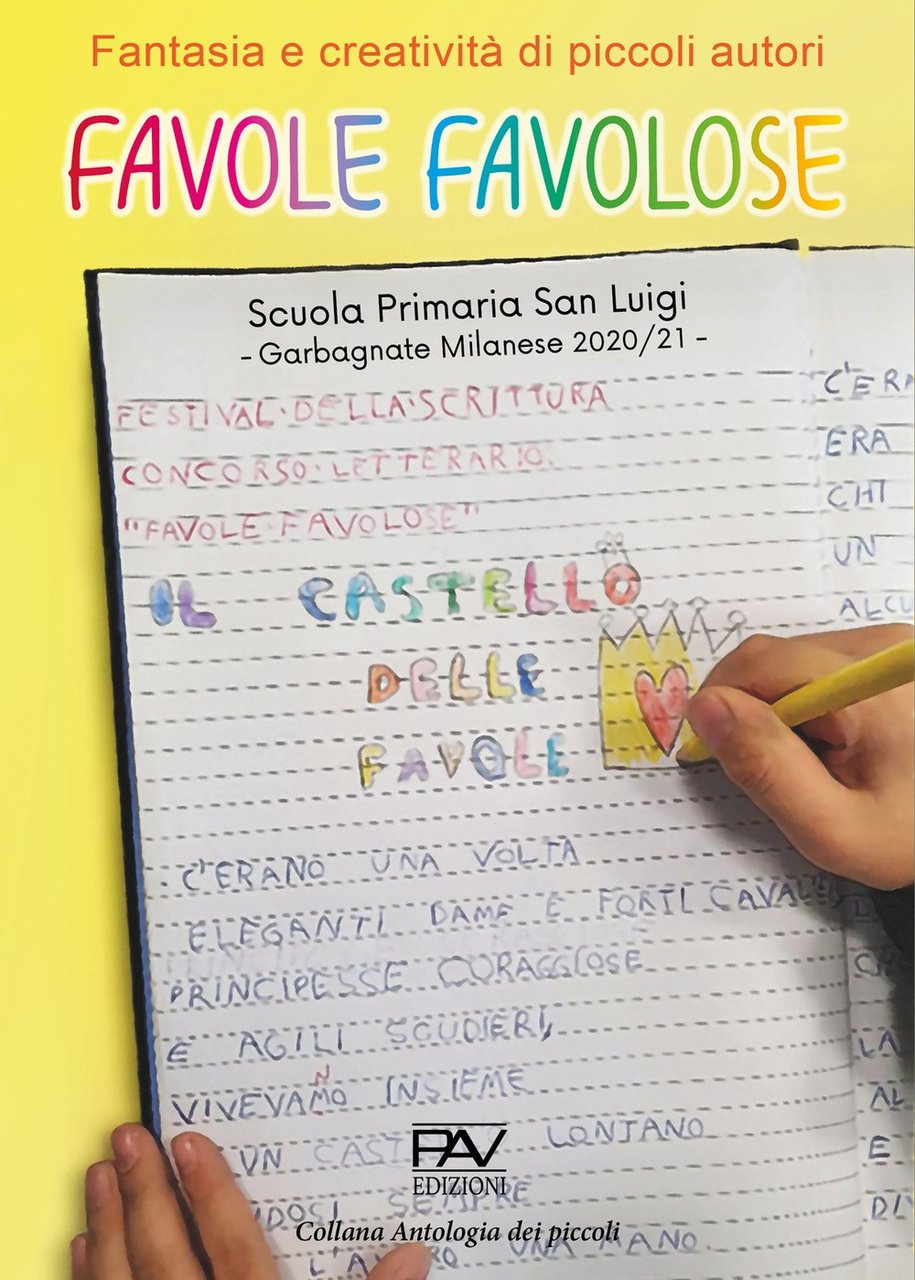 Fantasia e creatività di piccoli autori
FAVOLE FAVOLOSE
Scuola Primaria San Luigi
- Garbagnate Milanese 2020/21 -
FESTIVAL DELLA SCRITTURA
CONCORSO LETTERARIO
"FAVOLE FAVOLOSE"
IL CASTELLO
DELLE
FAVOLE
C'ERANO UNA VOLTA
ELEGANTI DAME E FORTI
PRINCIPESSE CORAGGIOSE
E AGILI SCUDIERI,
VIVEVANO INSIEME
UN LONTANO
SEMPRE
UNA MANO
ERA
CHI
UN
LA
AL
E
PAV
EDIZIONI
Collana Antologia dei piccoli